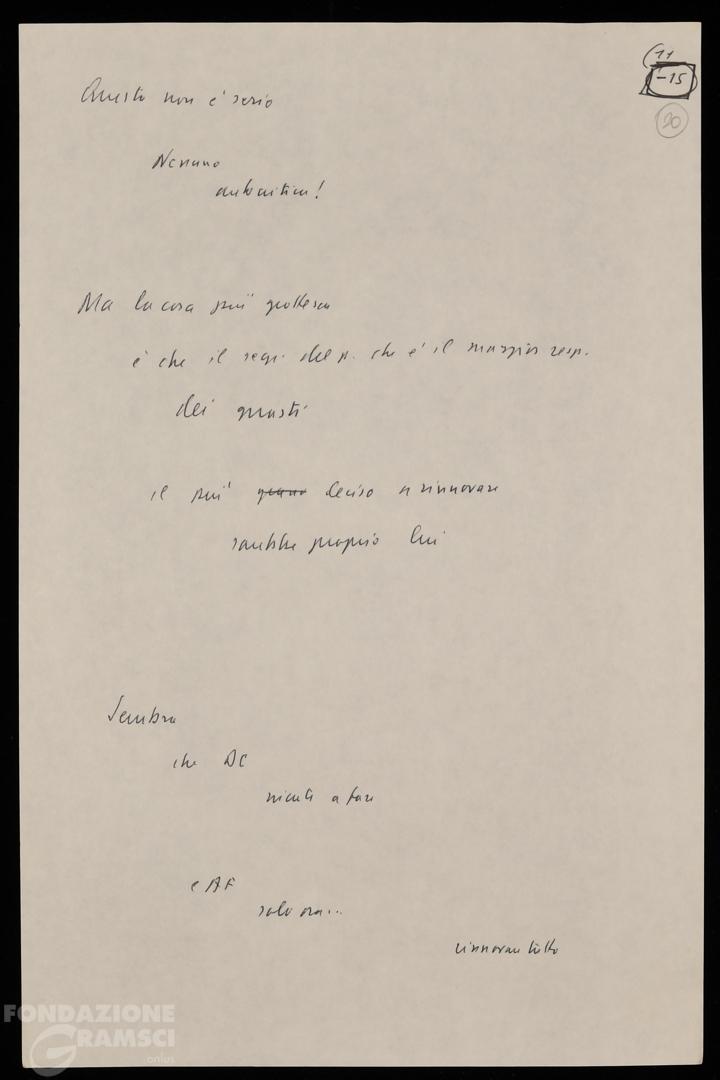 11
-15
20
Questo non è serio
Nessuna
autocritica!
Ma la cosa più grottesca
è che il segr. del p. che è il maggior resp.
dei guasti
il più deciso a rinnovare
sarebbe proprio lui
Sembra
che DC
niente a fare
e AF
solo ora...
rinnovare tutto
FONDAZIONE
GRAMSCI
onlus